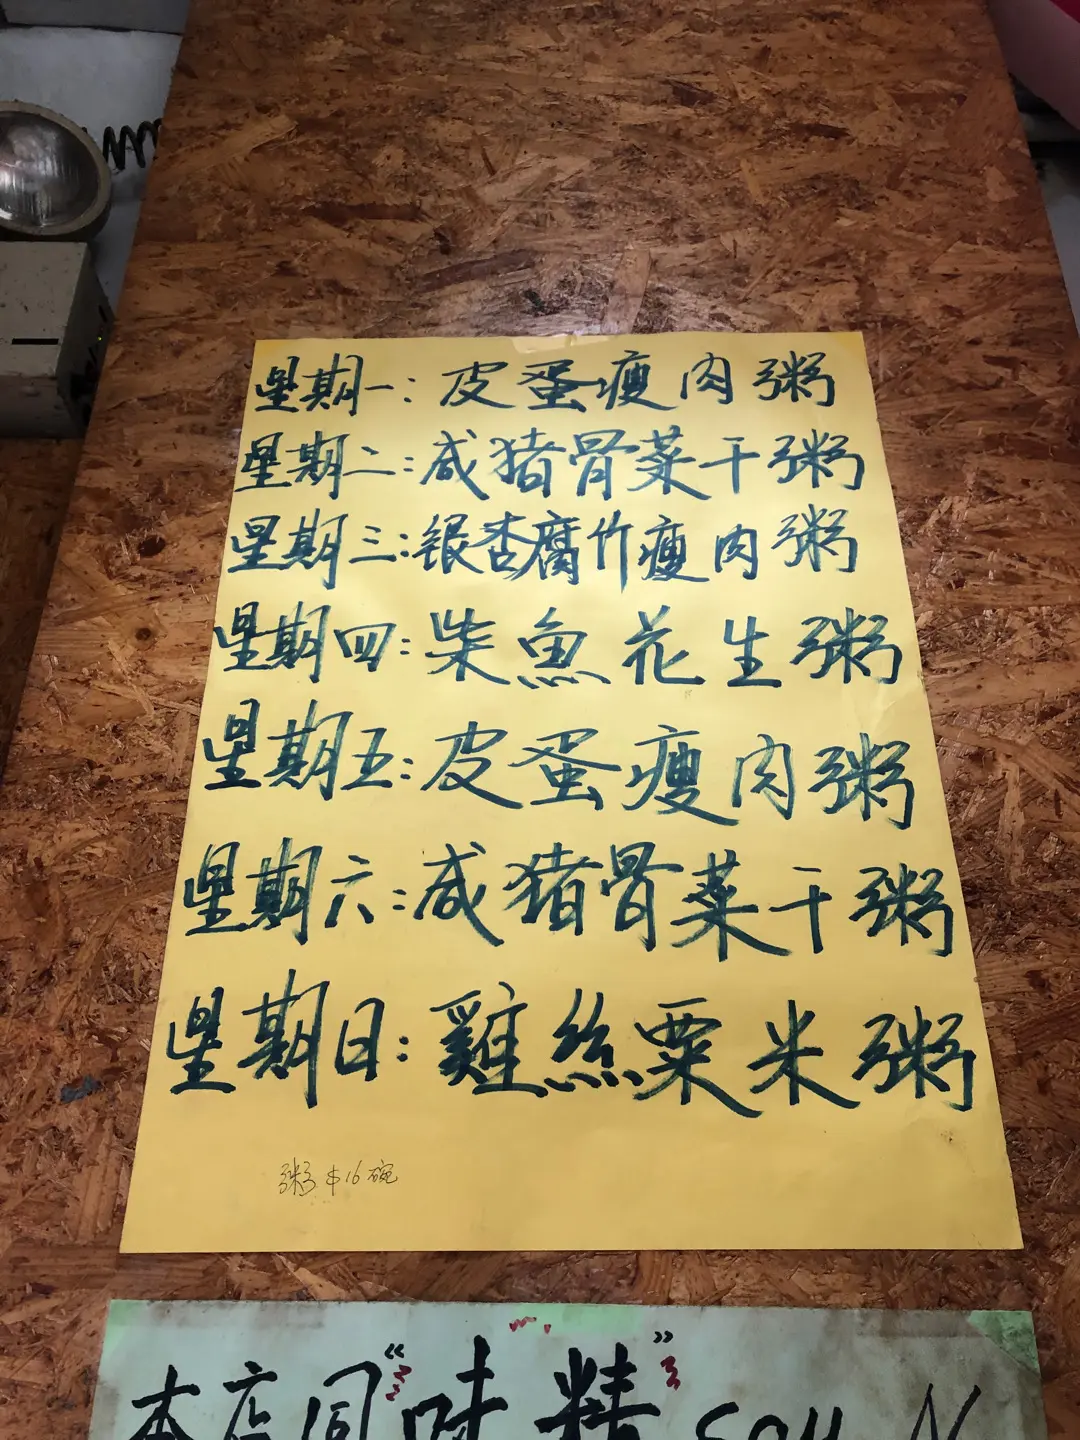 星期一：皮蛋瘦肉粥
星期二：咸猪骨菜干粥
星期三：银杏腐竹瘦肉粥
星期四：柴魚花生粥
星期五：皮蛋瘦肉粥
星期六：咸猪骨菜干粥
星期日：雞絲粟米粥
粥$16碗
本店同“味精”say N